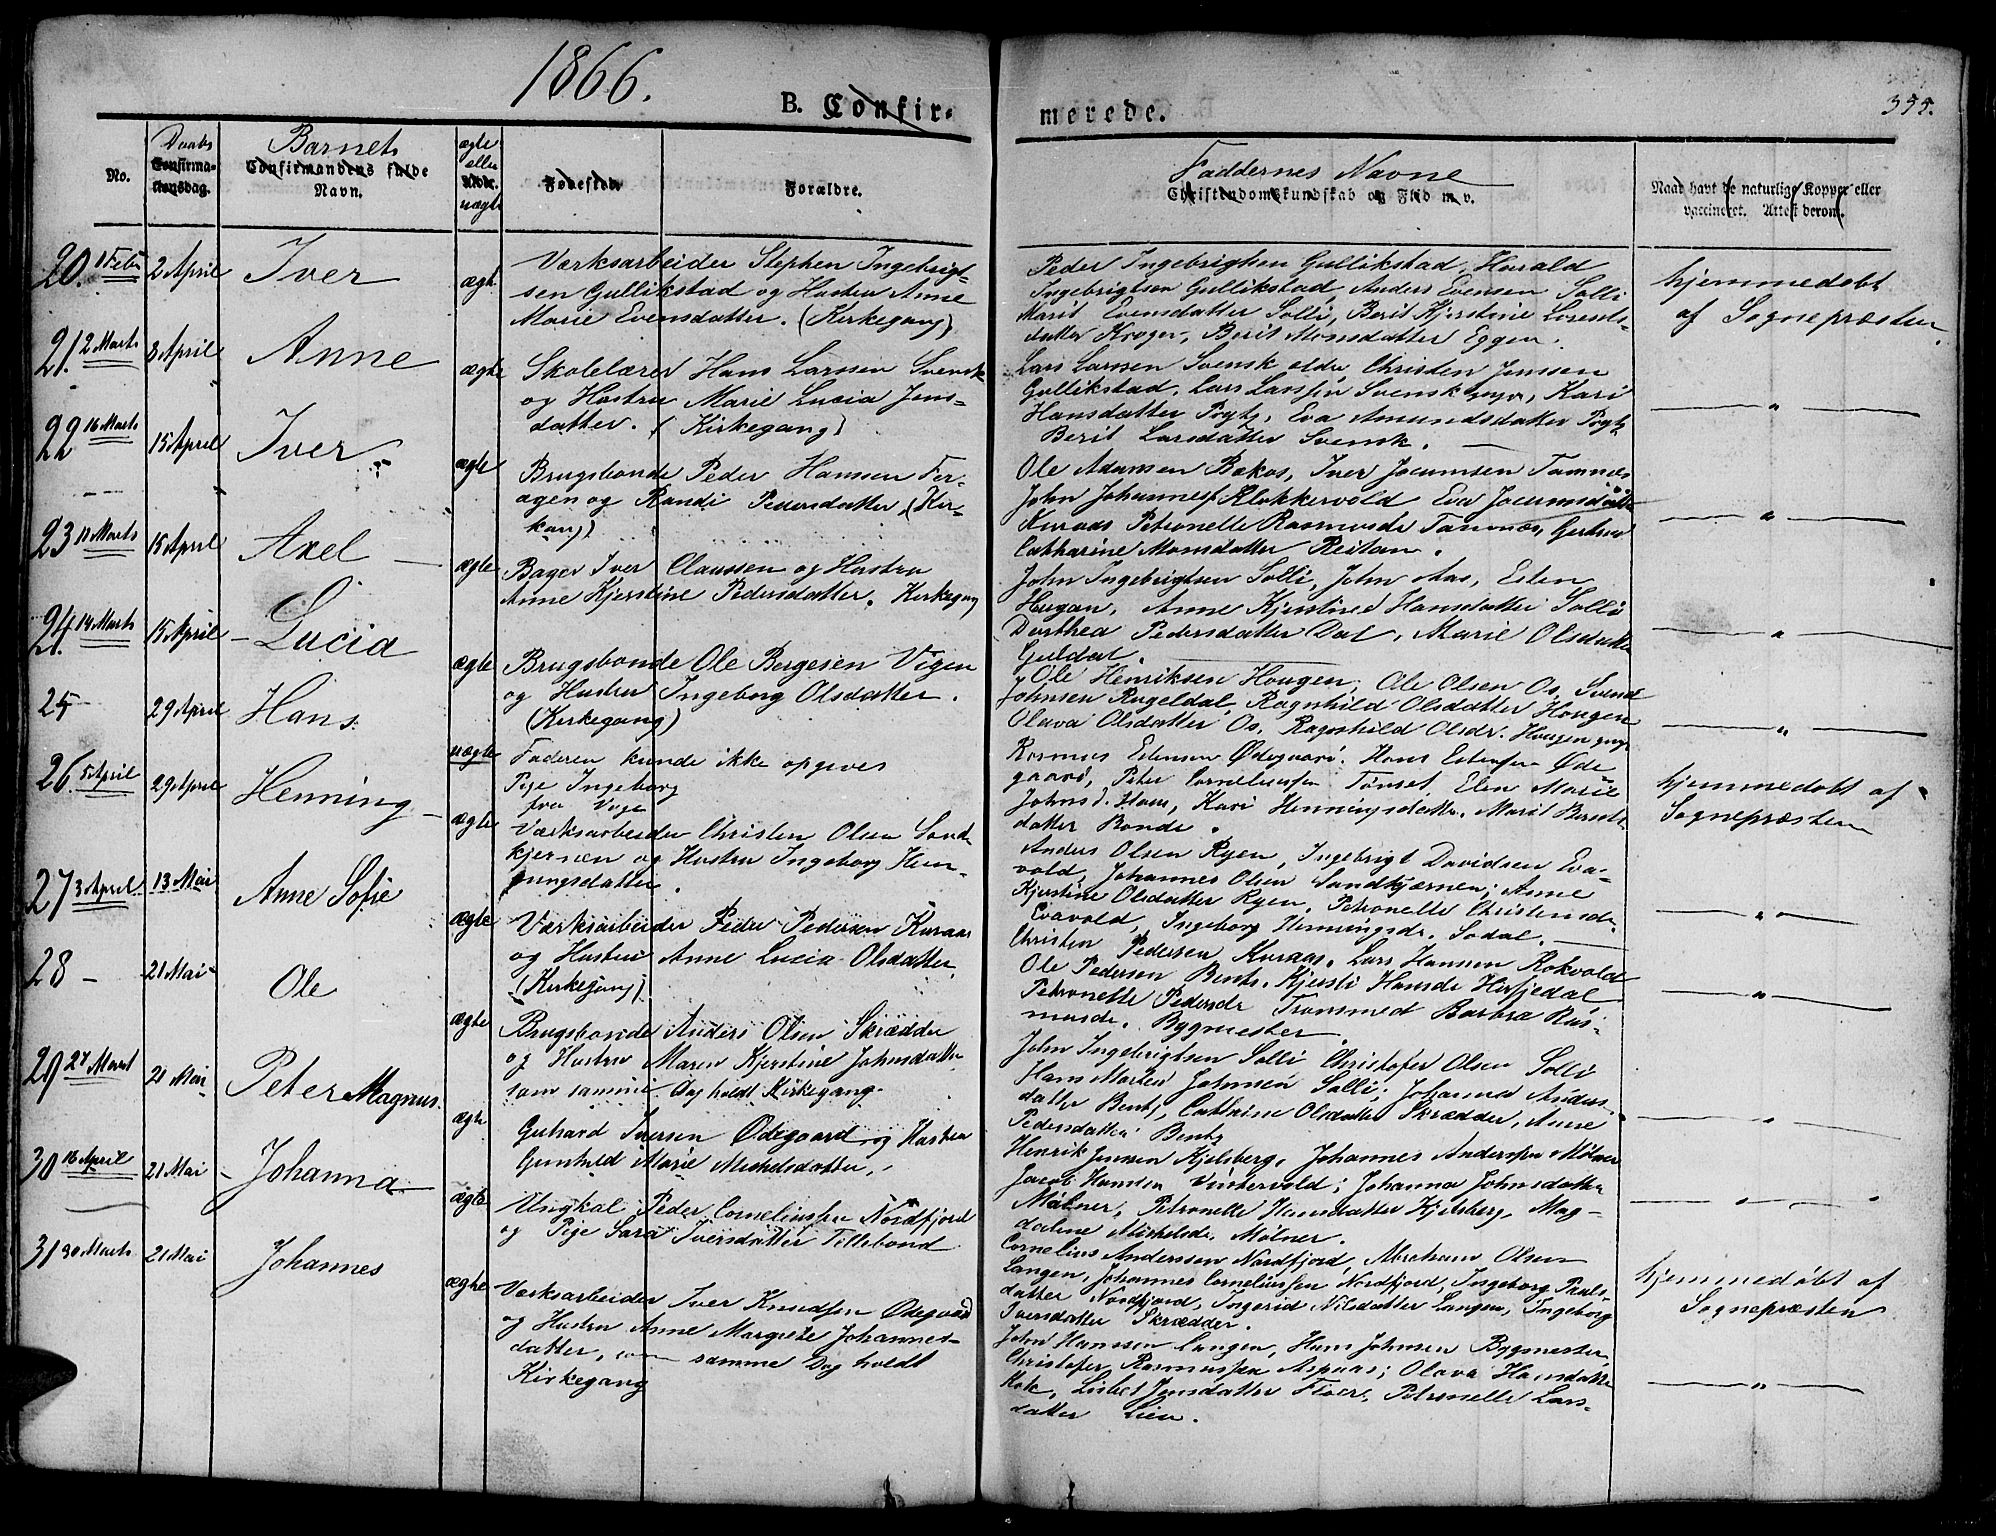 1866.
B. Confir-
merede.
355.
No.
Daabs
Confirma-
tionsdag.
Barnets
Confirmandens fulde
Navn.
ægte
eller
uægte
Fødested
Forældre.
Faddernes Navne
Christendomskundskab og Flid m. v.
Naar havt de naturlige Kopper eller
vaccineret. Attest derom.
20. 1 Feb 2 April Iver ægt.
Værksarbeider Stephen Ingebrigt-
sen Gullikstad og Hustru Anne
Marie Evensdatter. (Kirkegang)
Peder Ingebrigtsen Gullikstad, Harald
Ingebrigtsen Gullikstad, Anders Evensen Solli
Marit Evensdatter Solli, Berit Kjerstine
datter Berit Monsdatter Eggen.
hjemmedøbt
af Sognepræsten
21. 2 Marts 8 April Anne ægte
Skolelærer Hans Larssen Svensk
og Hustru Marie Lucia Jens-
datter. (Kirkegang)
Lars Larssen Svensk eldre Christen Jenssen
Gullikstad, Lars Larssen Svensk yngre, Kari
Hansdatter Eva Amundsdatter
Berit Larsdatter Svensk.
— " —
22 16 Marts 15 April Iver ægte
Brugsbonde Peder Hansen Fer-
agen og Randi Pedersdatter, (Kir-
kgang)
Ole Adamsen Bakos, Iver Jocumsen Tamnes
John Johannesf Klokkervold Eva Jocumsdatter
Kuraas Petronelle Rasmusdr Tamnæs, Gertrud
Catharine Monsdatter Reitan.
— " —
23 11 Marts 15 April Axel — ægte
Bager Iver Claussen og Hustru
Anne Kjerstine Pedersdatter. Kirkegang
John Ingebrigtsen Solli, John Aas, Esten
Haugan, Anne Kjerstine Hansdatter Solli
Dorthea Pedersdatter Dal, Marie Olsdatter
Guldal.
— " —
24. 14 Marts 15 April — Lucia ægte
Brugsbonde Ole Borgesen Vigen
og Hustru Ingeborg Olsdatter.
(Kirkegang)
Ole Henriksen Hougen, Ole Olsen Os, Svend
Johnsen Rugeldal, Ragnhild Olsdatter Hougen
Olava Olsdatter Os, Ragnhild Olsdr. Hougen yngr
— " —
25 29 April Hans. uægte
Faderen kunde ikke opgives
Pige Ingeborg
fra Vage
Rasmus Estensen Ødegaard. Hans Estensen Øde
gaard, Peter Corneliussen Tønset, Elen Marie
Johnsd. Haas, Kari Henningsdatter, Marit Berents-
datter Bonde.
hjemmedøbt af
Sognepræsten
26. 5 April 29 April Henning — ægte
Værksarbeider Christen Olsen Sand-
kjernen og Hustru Ingeborg Hen-
ningsdatter.
Anders Olsen Ryen, Ingebrigt Davidsen Eva-
vold, Johannes Olsen Sandkjærnen; Anne
Kjerstine Olsdatter Ryen, Petronelle Christensdr
Evavold, Ingeborg Henningsdr. Sodal.
— " —
27 3 April 13 Mai Anne Sofie ægte
Værksarbeider Peder Pedersen Kuraas
og Hustru Anne Lucia Olsdatter
(Kirkegang)
Christen Pedersen Kuraas. Lars Hansen Rokvold
Ole Pedersen Bents. Kjersti Hansdr Herjedal
Petronelle Pedersdr Tronsmed Barbra Ras-
musdr. Bygmester.
— " —
28 — 21 Mai Ole ægte
Brugsbonde Anders Olsen Skrædder
og Hustru Maren Kjerstine Johnsdatter
som samme Dag holdt Kirkegang.
John Ingebrigtsen Solli Christofer Olsen Solli
Hans Morten Johnsen Solli; Johanna Anders-
datter Bents, Cathrine Olsdatter Skrædder, Anne
Pedersdatter Bents
— " —
29 27 Marts 21 Mai Peter Magnus. ægte
Gerhard Iversen Ødegaard og Hustru
Gunhild Marie Mikkelsdatter,
Henrik Jensen Kjelsberg, Johannes Anderssen Mølner
Jacob Hansen Vintervold; Johanna Johnsdatter
Mølner, Petronelle Hansdatter Kjelsberg, Mag-
dalene Mikkelsdr. Mølner.
— " —
30 16 April 21 Mai — Johanna ægte
Ungkal Peder Corneliussen Nordfjord
og Pige Sara Iversdatter Tillebond
Cornelius Anderssen Nordfjord, Abraham Olsen
Langen, Johannes Corneliussen Nordfjord, Ingeborg Pauls-
datter Nordfjord, Ingerid Nilsdatter Langen, Ingeborg
Iversdatter Skrædder.
hjemmedøbt af
Sognepræsten
31 30 Marts 21 Mai Johannes ægte
Værksarbeider Iver Knudssen Ødegaard
og Hustru Anne Margrete Johannes-
datter, som samme Dag holdt
Kirkegang
John Hanssen Langen, Hans Johnsen Bygmester,
Christofer Rasmussen Aspaas; Olava Hansdatter
Kok, Lisbet Jensdatter Floer, Petronelle Lars-
datter Lien.
— " —